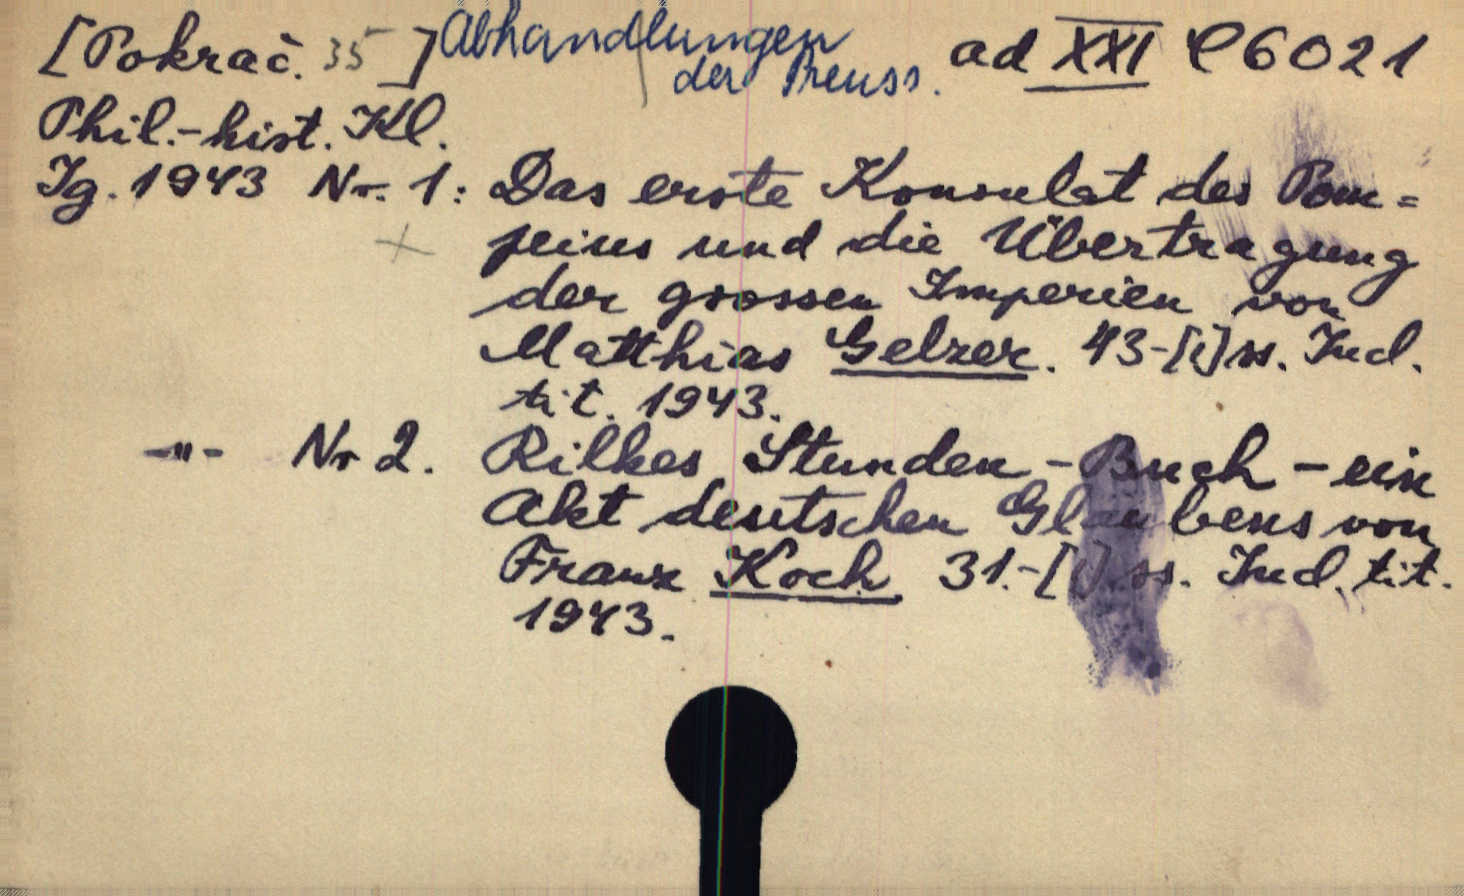 [Pokrač. 35] Abhandlungen ad XXI C 6021
der Preuss.
Phil.-hist. Kl.
Jg. 1943 Nr. 1: Das erste Konsulat des Pom=
peius und die Übertragung
der grossen Imperien von
Matthias Gelzer. 43-[1] ss. Ind.
tit. 1943.
-"- Nr 2. Rilkes Stunden-Buch - ein
Akt deutschen Glaubens von
Franz Koch 31.-[1] ss. Ind. tit.
1943.